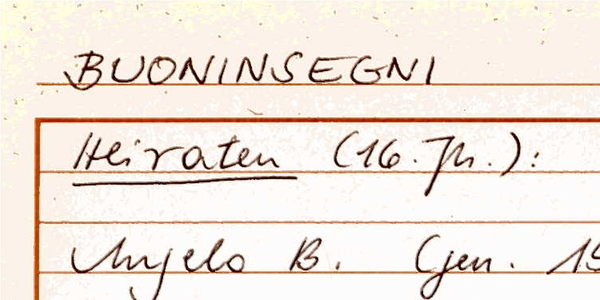 BUONINSEGNI
Heiraten (16. Jh.):
Angelo B. (gen. 15